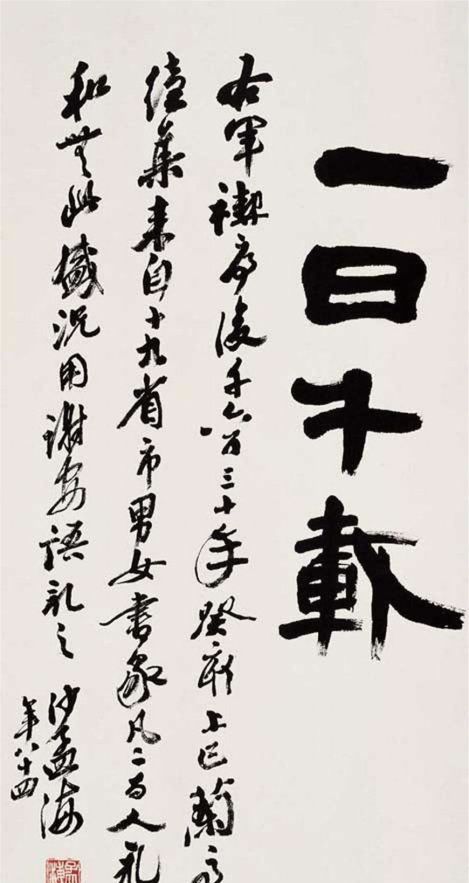 一日千載
右軍禊序後千六百三十年癸亥上巳蘭亭
集來自十九省市男女書家凡二百人
和無此盛況用謝安語之
沙孟海
年八十四